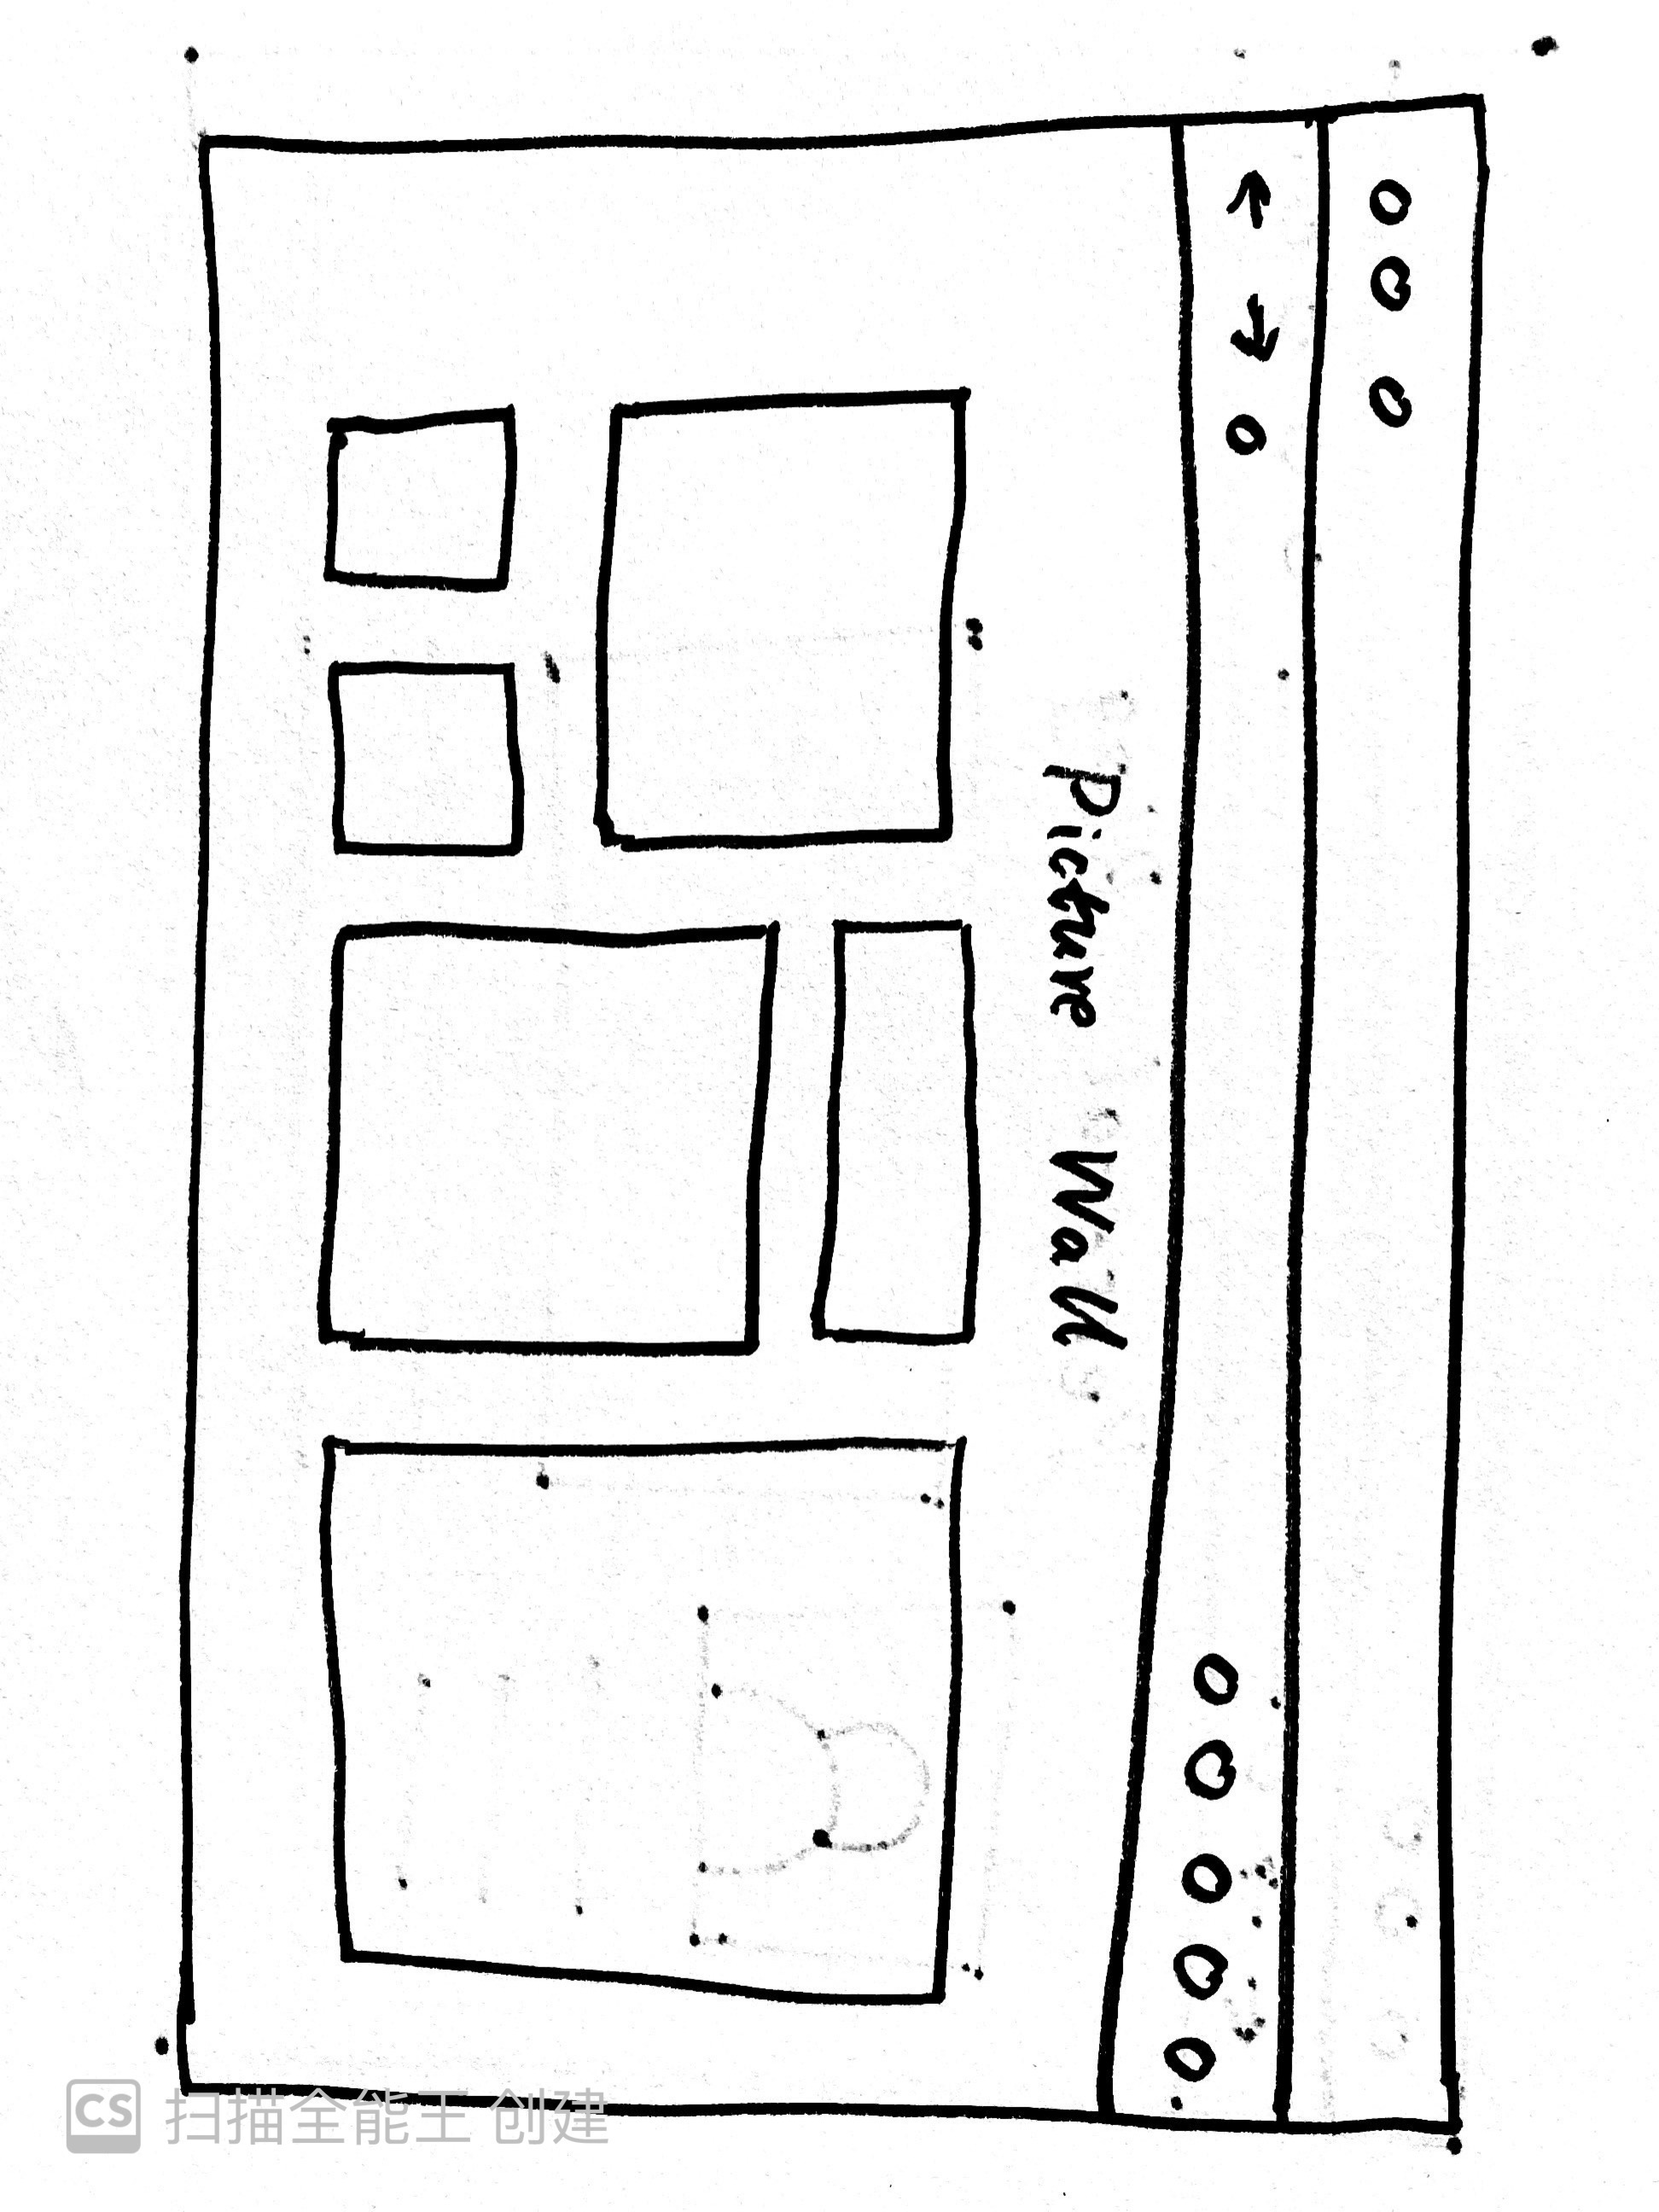 Picture Wall
CS 扫描全能王 创建